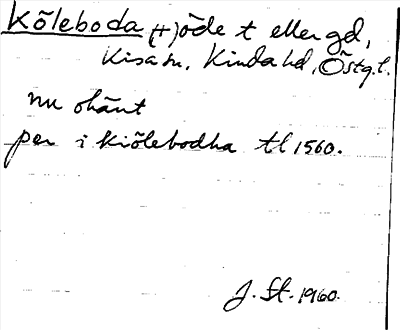 Kõleboda (+) öde t eller gd,
Kisa sn, Kinda hd, Östg.l.
nu okänt
per i kiõlebodha tl 1560.
J. St. 1960.